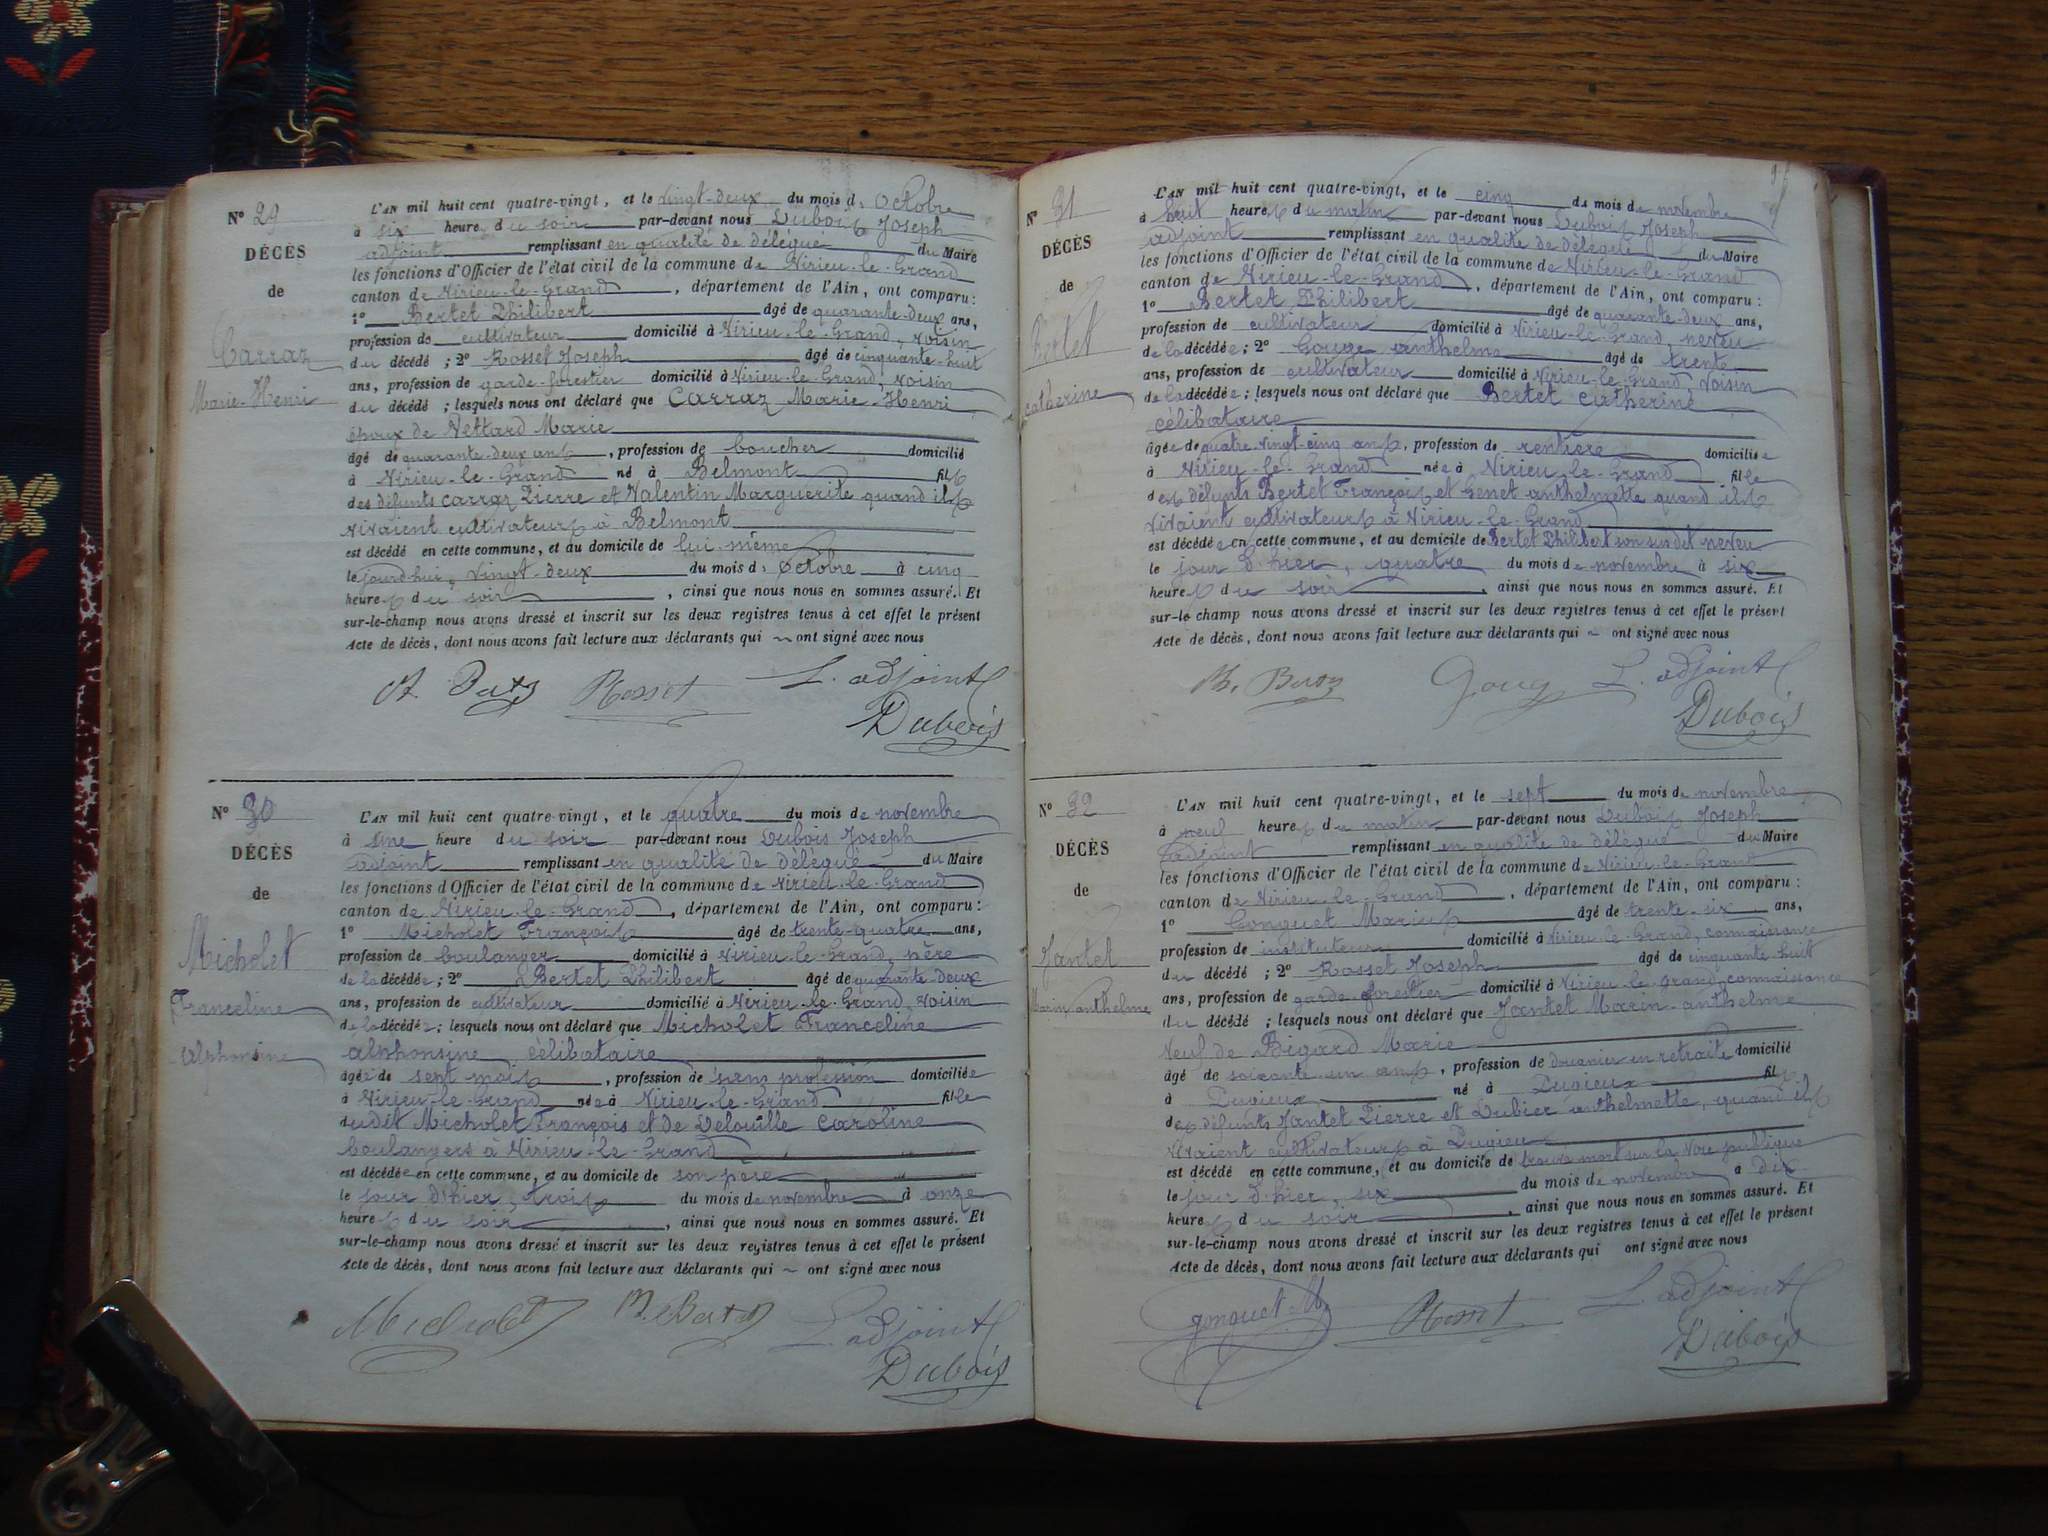 N° 29
DÉCÈS
de
Carraz
Marie-Henri
L'AN mil huit cent quatre-vingt, et le vingt-deux du mois d' Octobre
à six heures du soir par-devant nous Dubois Joseph
adjoint remplissant en qualité de délégué du Maire
les fonctions d'Officier de l'état civil de la commune de Virieu-le-Grand
canton de Virieu-le-Grand, département de l'Ain, ont comparu :
1° Bertet Philibert âgé de quarante-deux ans,
profession de cultivateur domicilié à Virieu-le-Grand, voisin
du décédé ; 2° Rosset Joseph âgé de cinquante-huit
ans, profession de garde-forestier domicilié à Virieu-le-Grand, voisin
du décédé ; lesquels nous ont déclaré que Carraz Marie-Henri
époux de Vettard Marie
âgé de quarante-deux ans, profession de boucher domicilié
à Virieu-le-Grand né à Belmont fils
des défunts Carraz Pierre et Valentin Marguerite quand ils
vivaient cultivateurs à Belmont
est décédé en cette commune, et au domicile de lui-même
le jourd'hui, vingt-deux du mois d' Octobre à cinq
heures du soir, ainsi que nous nous en sommes assuré. Et
sur-le-champ nous avons dressé et inscrit sur les deux registres tenus à cet effet le présent
Acte de décès, dont nous avons fait lecture aux déclarants qui ~ ont signé avec nous
Rosset L'adjoint
Dubois
N° 30
DÉCÈS
de
Micholet
Franceline
Alphonsine
L'AN mil huit cent quatre-vingt, et le quatre du mois de novembre
à une heure du soir par-devant nous Dubois Joseph
adjoint remplissant en qualité de délégué du Maire
les fonctions d'Officier de l'état civil de la commune de Virieu-le-Grand
canton de Virieu-le-Grand, département de l'Ain, ont comparu :
1° Micholet François âgé de trente-quatre ans,
profession de boulanger domicilié à Virieu-le-Grand, père
de la décédée ; 2° Bertet Philibert âgé de quarante-deux
ans, profession de cultivateur domicilié à Virieu-le-Grand, voisin
de la décédée ; lesquels nous ont déclaré que Micholet Franceline
alphonsine célibataire
âgée de sept mois, profession de sans profession domiciliée
à Virieu-le-Grand née à Virieu-le-Grand fille
dudit Micholet François et de Caroline
boulangers à Virieu-le-Grand
est décédée en cette commune, et au domicile de son père
le jour d'hier, trois du mois de novembre à onze
heures du soir, ainsi que nous nous en sommes assuré. Et
sur-le-champ nous avons dressé et inscrit sur les deux registres tenus à cet effet le présent
Acte de décès, dont nous avons fait lecture aux déclarants qui ~ ont signé avec nous
Micholet L'adjoint
Dubois
N° 31
DÉCÈS
de
Bertet
catherine
L'AN mil huit cent quatre-vingt, et le cinq du mois de novembre
à huit heures du matin par-devant nous Dubois Joseph
adjoint remplissant en qualité de délégué du Maire
les fonctions d'Officier de l'état civil de la commune de Virieu-le-Grand
canton de Virieu-le-Grand, département de l'Ain, ont comparu :
1° Bertet Philibert âgé de quarante-deux ans,
profession de cultivateur domicilié à Virieu-le-Grand, neveu
de la décédée ; 2° Gouge anthelme âgé de trente
ans, profession de cultivateur domicilié à Virieu-le-Grand voisin
de la décédée ; lesquels nous ont déclaré que Bertet catherine
célibataire
âgée de quatre vingt-cinq ans, profession de rentière domiciliée
à Virieu-le-Grand née à Virieu-le-Grand fille
des défunts Bertet François et Genet anthelmette quand ils
vivaient cultivateurs à Virieu-le-Grand
est décédée en cette commune, et au domicile de Bertet Philibert son susdit neveu
le jour d'hier, quatre du mois de novembre à six
heures du soir, ainsi que nous nous en sommes assuré. Et
sur-le-champ nous avons dressé et inscrit sur les deux registres tenus à cet effet le présent
Acte de décès, dont nous avons fait lecture aux déclarants qui ~ ont signé avec nous
Goug L'adjoint
Dubois
N° 32
DÉCÈS
de
Jantet
Marin anthelme
L'AN mil huit cent quatre-vingt, et le sept du mois de novembre
à neuf heures du matin par-devant nous Dubois Joseph
adjoint remplissant en qualité de délégué du Maire
les fonctions d'Officier de l'état civil de la commune de Virieu-le-Grand
canton de Virieu-le-Grand, département de l'Ain, ont comparu :
1° Gonguet Marius âgé de trente-six ans,
profession de instituteur domicilié à Virieu-le-Grand, connaissance
du décédé ; 2° Rosset Joseph âgé de cinquante-huit
ans, profession de garde-forestier domicilié à Virieu-le-grand, connaissance
du décédé ; lesquels nous ont déclaré que Jantet Marin-anthelme
veuf de Bigard Marie
âgé de soixante-un ans, profession de douanier en retraite domicilié
à Pugieu né à Pugieu fils
des défunts Jantet Pierre et Dubier anthelmette, quand ils
vivaient cultivateurs à Pugieu
est décédé en cette commune, et au domicile de trouvé mort sur la voie publique
le jour d'hier, six du mois de novembre à dix
heures du soir, ainsi que nous nous en sommes assuré. Et
sur-le-champ nous avons dressé et inscrit sur les deux registres tenus à cet effet le présent
Acte de décès, dont nous avons fait lecture aux déclarants qui ont signé avec nous
gonguet M. Rosset L'adjoint
Dubois